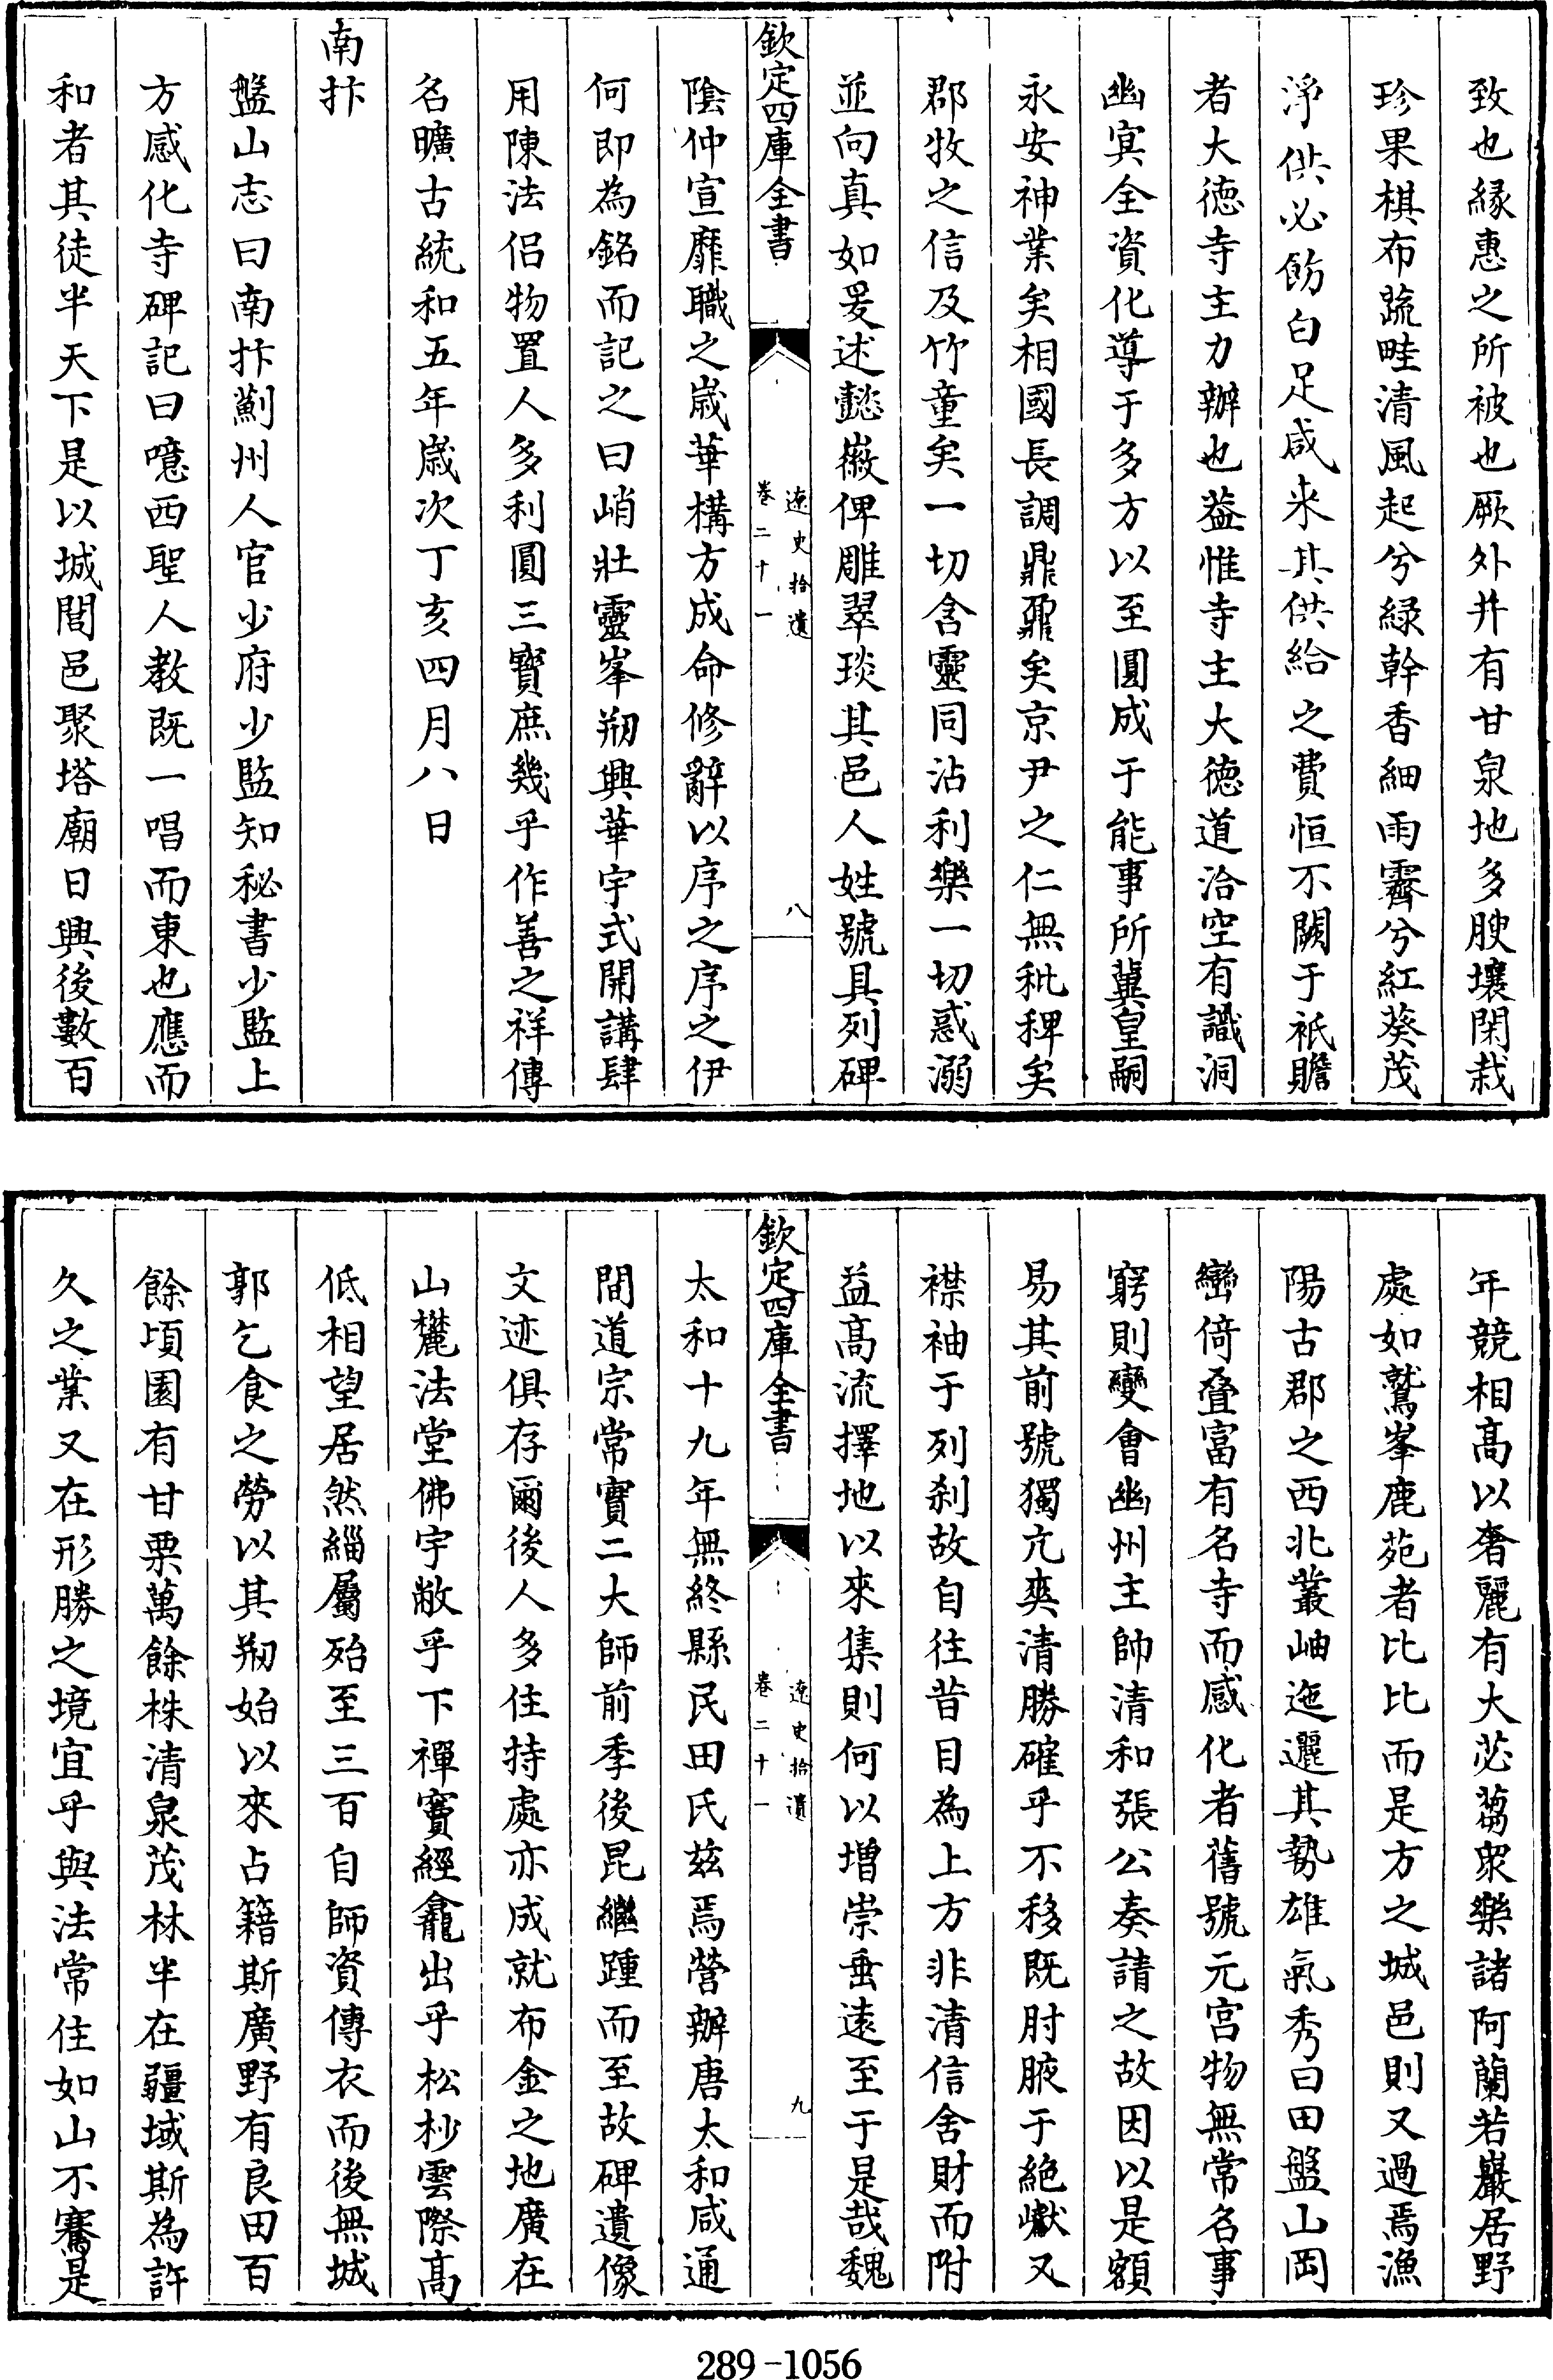 致也縁惠之所被也厥外井有甘泉地多腴壤閑栽
珍果棋布蔬畦清風起兮緑幹香細雨霽兮紅葵茂
淨供必飭白足咸来其供給之費恒不闕于祇贍
者大徳寺主力辦也葢惟寺主大徳道洽空有識洞
幽㝠全資化導于多方以至圓成于能事所冀皇嗣
永安神業矣相國長調鼎鼐矣京尹之仁無秕稗矣
郡牧之信及竹童矣一切含靈同沾利樂一切惑溺
並向真如爰述懿徽俾雕翠琰其邑人姓號具列碑
欽定四庫全書
遼史拾遺
卷二十一
八
隂仲宣靡職之嵗華構方成命修辭以序之序之伊
何即為銘而記之曰峭壯靈峯剏興華宇式開講肆
用陳法侣物置人多利圓三寳庶幾乎作善之祥傳
名曠古統和五年嵗次丁亥四月八日
南抃
盤山志曰南抃薊州人官少府少監知秘書少監上
方感化寺碑記曰噫西聖人教既一唱而東也應而
和者其徒半天下是以城閭邑聚塔廟日興後數百
年競相髙以奢麗有大苾蒭衆樂諸阿蘭若巖居野
處如鷲峯鹿苑者比比而是方之城邑則又過焉漁
陽古郡之西北叢岫迤邐其勢雄氣秀曰田盤山岡
巒倚叠富有名寺而感化者舊號元宫物無常名事
窮則變會幽州主帥清和張公奏請之故因以是額
易其前號獨亢爽清勝確乎不移既肘腋于絶巘又
襟袖于列刹故自往昔目為上方非清信舍財而附
益髙流擇地以來集則何以增崇垂逺至于是哉魏
欽定四庫全書
遼史拾遺
卷二十一
九
太和十九年無終縣民田氏兹焉營辦唐太和咸通
間道宗常實二大師前季後昆繼踵而至故碑遺像
文迹俱存爾後人多住持處亦成就布金之地廣在
山麓法堂佛宇敞乎下禪竇經龕出乎松杪雲際髙
低相望居然緇屬殆至三百自師資傳衣而後無城
郭乞食之勞以其剏始以來占籍斯廣野有良田百
餘頃園有甘栗萬餘株清泉茂林半在疆域斯為許
久之業又在形勝之境宜乎與法常住如山不騫是
289-1056